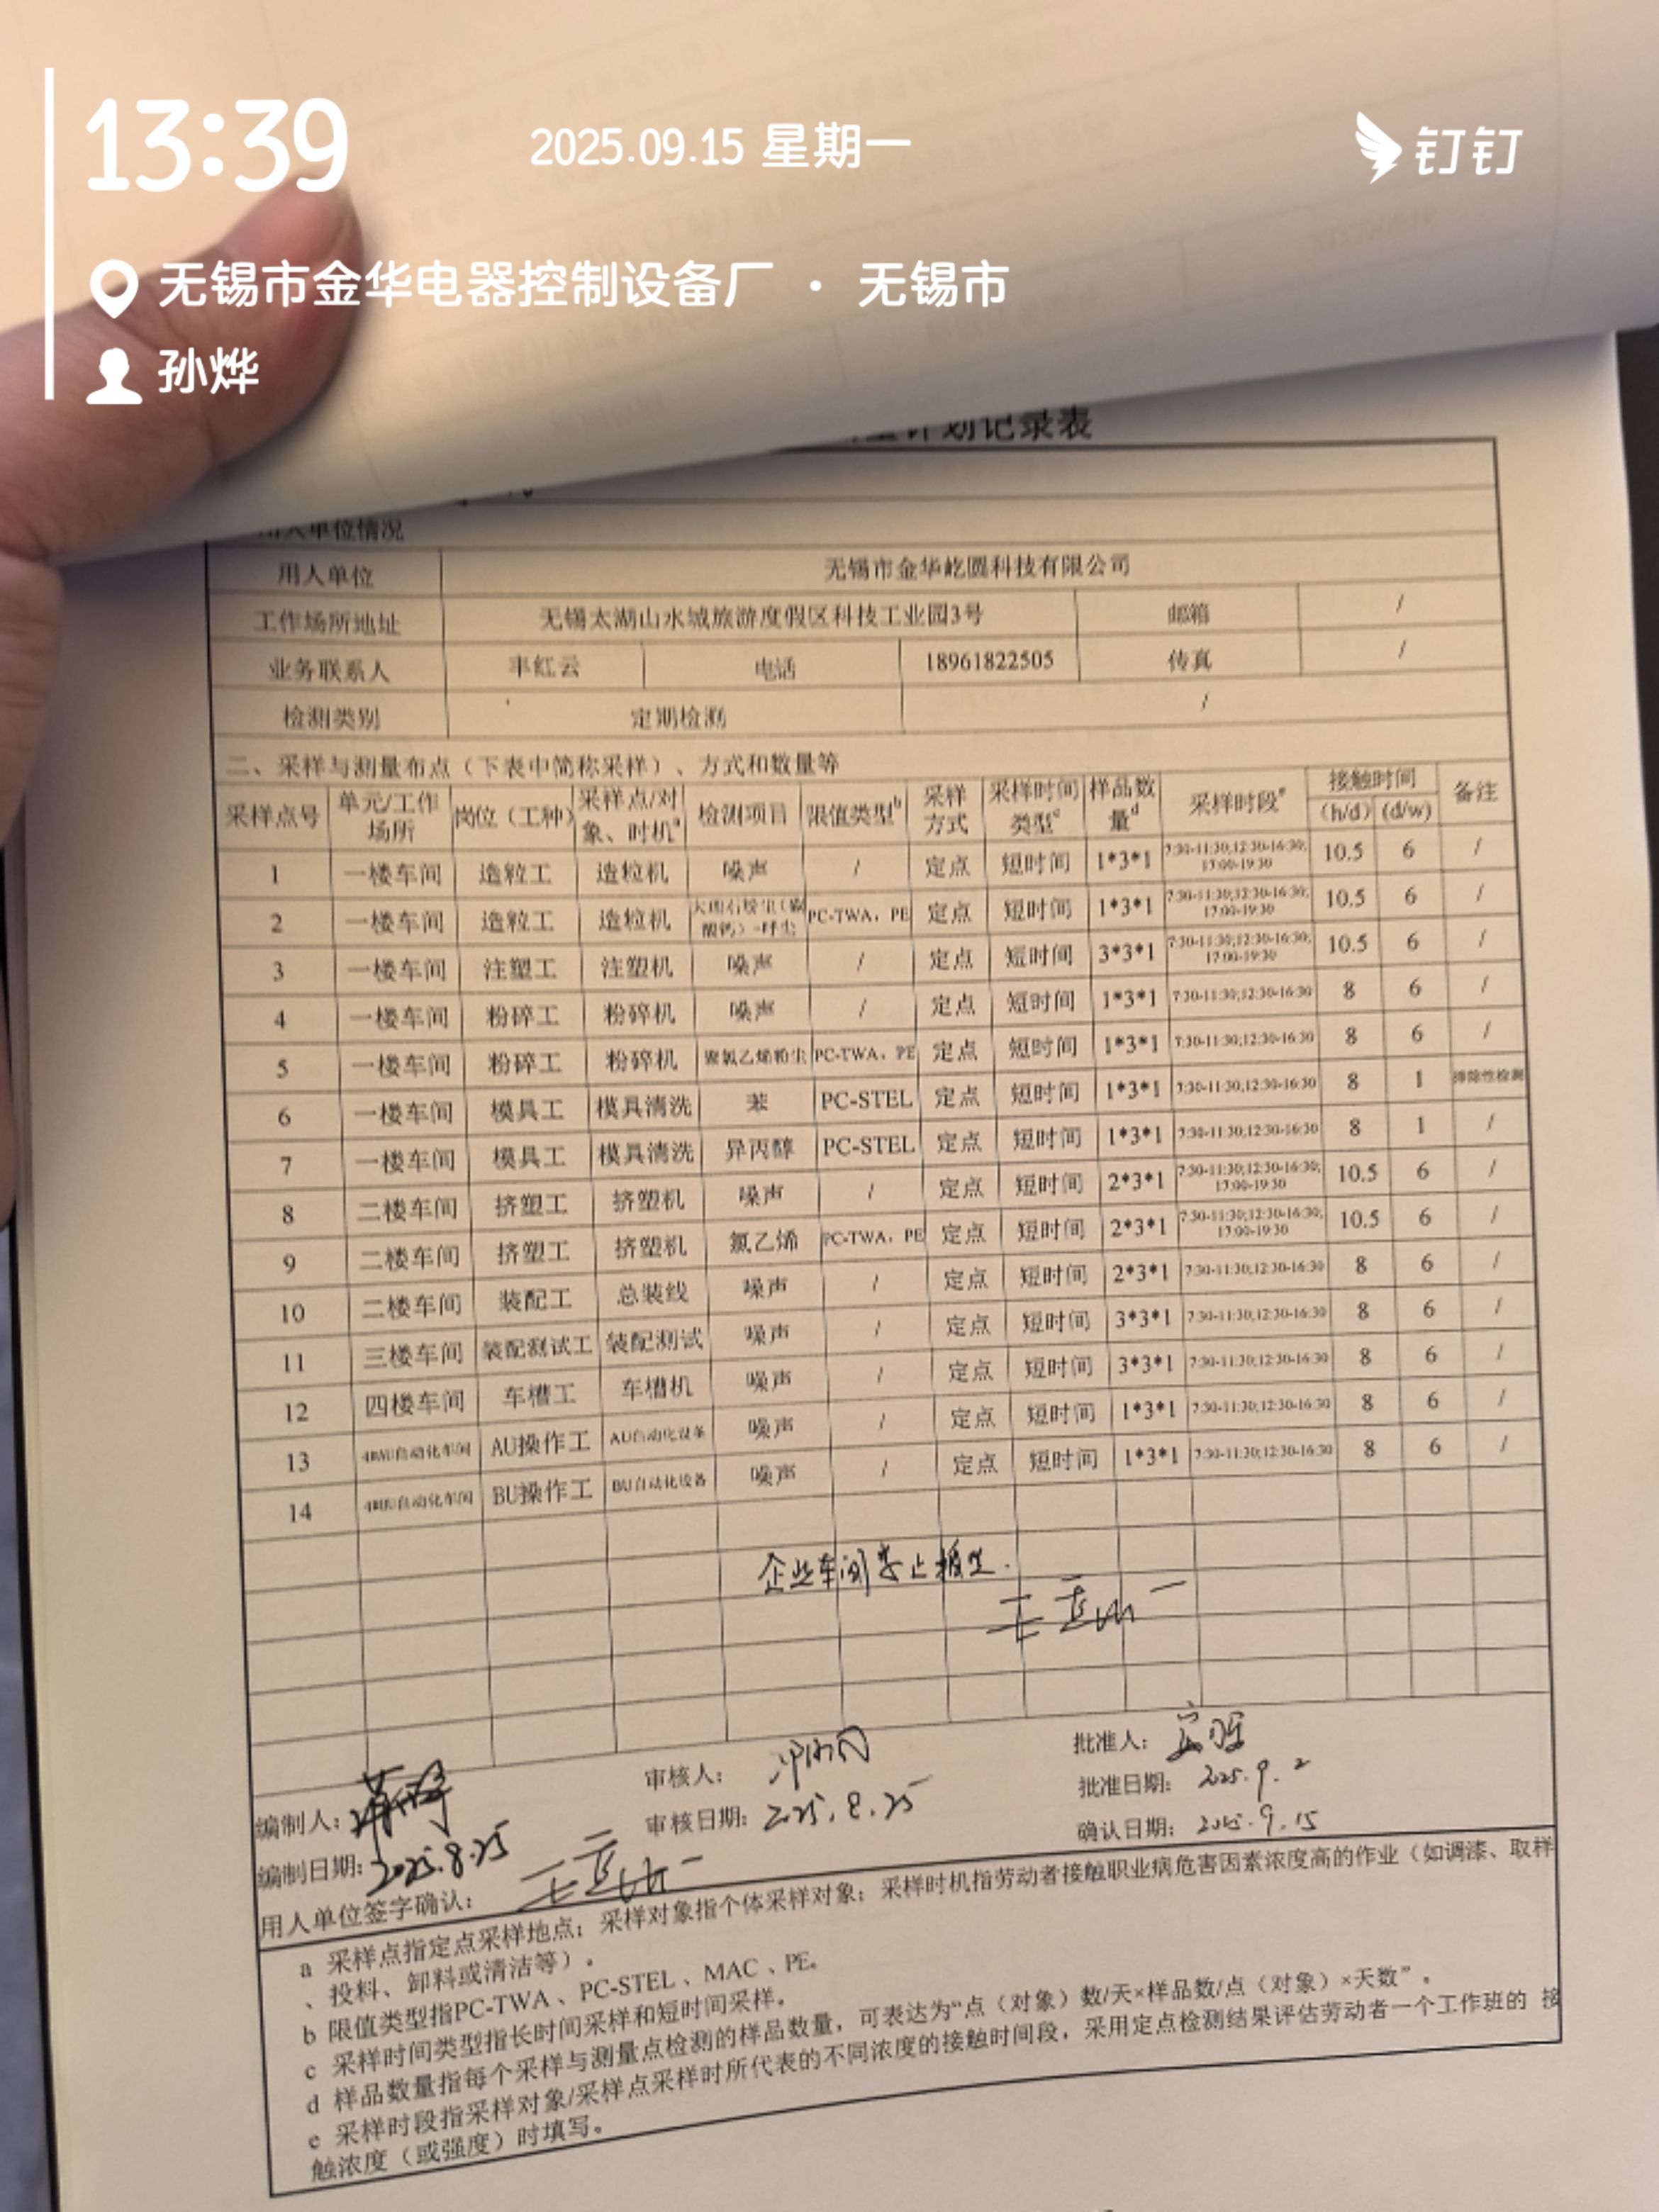 13:39
2025.09.15 星期一
钉钉
无锡市金华电器控制设备厂 · 无锡市
孙烨
计划记录表
用人单位情况
用人单位 无锡市金华屹圆科技有限公司
工作场所地址 无锡太湖山水城旅游度假区科技工业园3号 邮箱 /
业务联系人 丰红云 电话 18961822505 传真 /
检测类别 定期检测 /
二、采样与测量布点（下表中简称采样）、方式和数量等
采样点号 单元/工作场所 岗位（工种） 采样点/对象、时机a 检测项目 限值类型b 采样方式 采样时间类型c 样品数量d 采样时段e 接触时间 (h/d) (d/w) 备注
1 一楼车间 造粒工 造粒机 噪声 / 定点 短时间 1*3*1 7:30-11:30;12:30-16:30;17:00-19:30 10.5 6 /
2 一楼车间 造粒工 造粒机 大理石粉尘（碳酸钙）-呼尘 PC-TWA，PE 定点 短时间 1*3*1 7:30-11:30;12:30-16:30;17:00-19:30 10.5 6 /
3 一楼车间 注塑工 注塑机 噪声 / 定点 短时间 3*3*1 7:30-11:30;12:30-16:30;17:00-19:30 10.5 6 /
4 一楼车间 粉碎工 粉碎机 噪声 / 定点 短时间 1*3*1 7:30-11:30;12:30-16:30 8 6 /
5 一楼车间 粉碎工 粉碎机 聚氯乙烯粉尘 PC-TWA，PE 定点 短时间 1*3*1 7:30-11:30;12:30-16:30 8 6 /
6 一楼车间 模具工 模具清洗 苯 PC-STEL 定点 短时间 1*3*1 7:30-11:30;12:30-16:30 8 1 排除性检测
7 一楼车间 模具工 模具清洗 异丙醇 PC-STEL 定点 短时间 1*3*1 7:30-11:30;12:30-16:30 8 1 /
8 二楼车间 挤塑工 挤塑机 噪声 / 定点 短时间 2*3*1 7:30-11:30;12:30-16:30;17:00-19:30 10.5 6 /
9 二楼车间 挤塑工 挤塑机 氯乙烯 PC-TWA，PE 定点 短时间 2*3*1 7:30-11:30;12:30-16:30;17:00-19:30 10.5 6 /
10 二楼车间 装配工 总装线 噪声 / 定点 短时间 2*3*1 7:30-11:30;12:30-16:30 8 6 /
11 三楼车间 装配测试工 装配测试 噪声 / 定点 短时间 3*3*1 7:30-11:30;12:30-16:30 8 6 /
12 四楼车间 车槽工 车槽机 噪声 / 定点 短时间 3*3*1 7:30-11:30;12:30-16:30 8 6 /
13 自动化车间 AU操作工 AU自动化设备 噪声 / 定点 短时间 1*3*1 7:30-11:30;12:30-16:30 8 6 /
14 自动化车间 BU操作工 BU自动化设备 噪声 / 定点 短时间 1*3*1 7:30-11:30;12:30-16:30 8 6 /
企业车间禁止
编制人： 审核人： 批准人：
编制日期：2025.8.25 审核日期：2025.8.25 批准日期：2025.9.2
用人单位签字确认： 确认日期：2025.9.15
a 采样点指定点采样地点；采样对象指个体采样对象；采样时机指劳动者接触职业病危害因素浓度高的作业（如调漆、取样
、投料、卸料或清洁等）。
b 限值类型指PC-TWA 、PC-STEL 、MAC 、PE。
c 采样时间类型指长时间采样和短时间采样。
d 样品数量指每个采样与测量点检测的样品数量，可表达为“点（对象）数/天×样品数/点（对象）×天数”。
e 采样时段指采样对象/采样点采样时所代表的不同浓度的接触时间段，采用定点检测结果评估劳动者一个工作班的 接
触浓度（或强度）时填写。